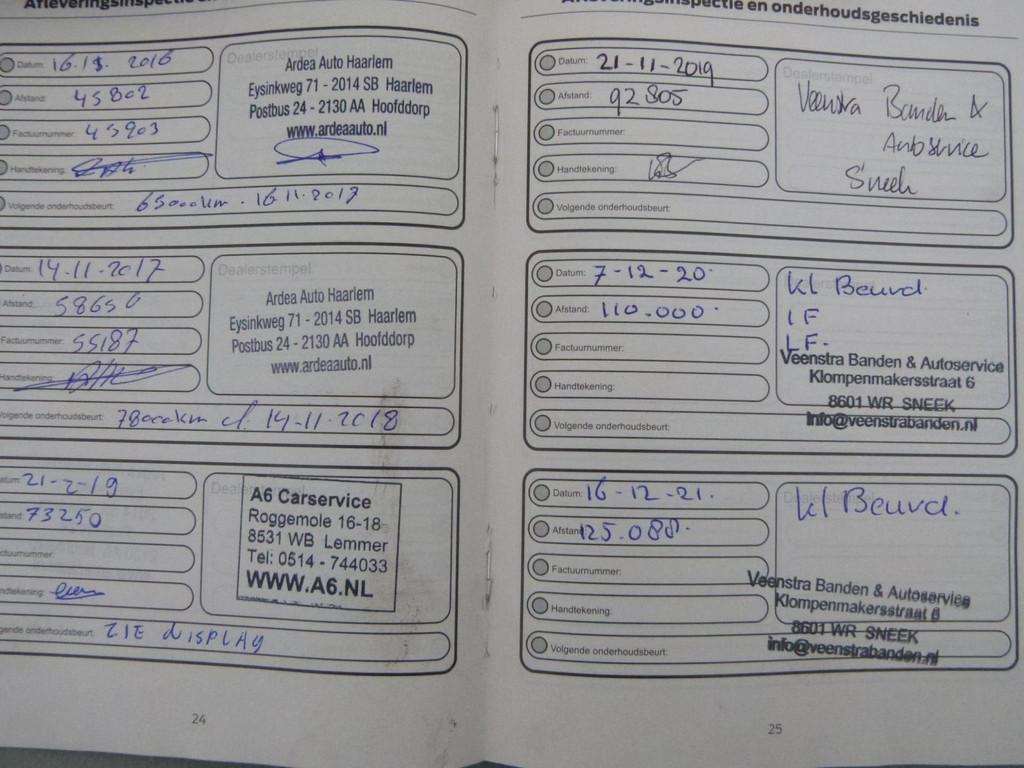 Afleveringsinspectie
Datum: 16.11.2016
Afstand: 45802
Factuurnummer: 45903
Handtekening:
Volgende onderhoudsbeurt: 65000km . 16.11.2017
Dealerstempel
Ardea Auto Haarlem
Eysinkweg 71 - 2014 SB Haarlem
Postbus 24 - 2130 AA Hoofddorp
www.ardeaauto.nl
Datum: 14-11-2017
Afstand: 58656
Factuurnummer: 55187
Handtekening:
Volgende onderhoudsbeurt: 78000km of 14-11-2018
Dealerstempel
Ardea Auto Haarlem
Eysinkweg 71 - 2014 SB Haarlem
Postbus 24 - 2130 AA Hoofddorp
www.ardeaauto.nl
Datum: 21-2-19
Afstand: 73250
Factuurnummer:
Handtekening:
Volgende onderhoudsbeurt: ZIE DISPLAY
A6 Carservice
Roggemole 16-18
8531 WB Lemmer
Tel: 0514 - 744033
WWW.A6.NL
24
Afleveringsinspectie en onderhoudsgeschiedenis
Datum: 21-11-2019
Afstand: 92805
Factuurnummer:
Handtekening:
Volgende onderhoudsbeurt:
Dealerstempel
Veenstra Banden &
Autoservice
Sneek
Datum: 7-12-20.
Afstand: 110.000.
Factuurnummer:
Handtekening:
Volgende onderhoudsbeurt:
kl Beurd.
IF
LF.
Veenstra Banden & Autoservice
Klompenmakersstraat 6
8601 WR SNEEK
info@veenstrabanden.nl
Datum: 16-12-21.
Afstand: 125.088.
Factuurnummer:
Handtekening:
Volgende onderhoudsbeurt:
Dealerstempel
kl Beurd.
Veenstra Banden & Autoservice
Klompenmakersstraat 6
8601 WR SNEEK
info@veenstrabanden.nl
25